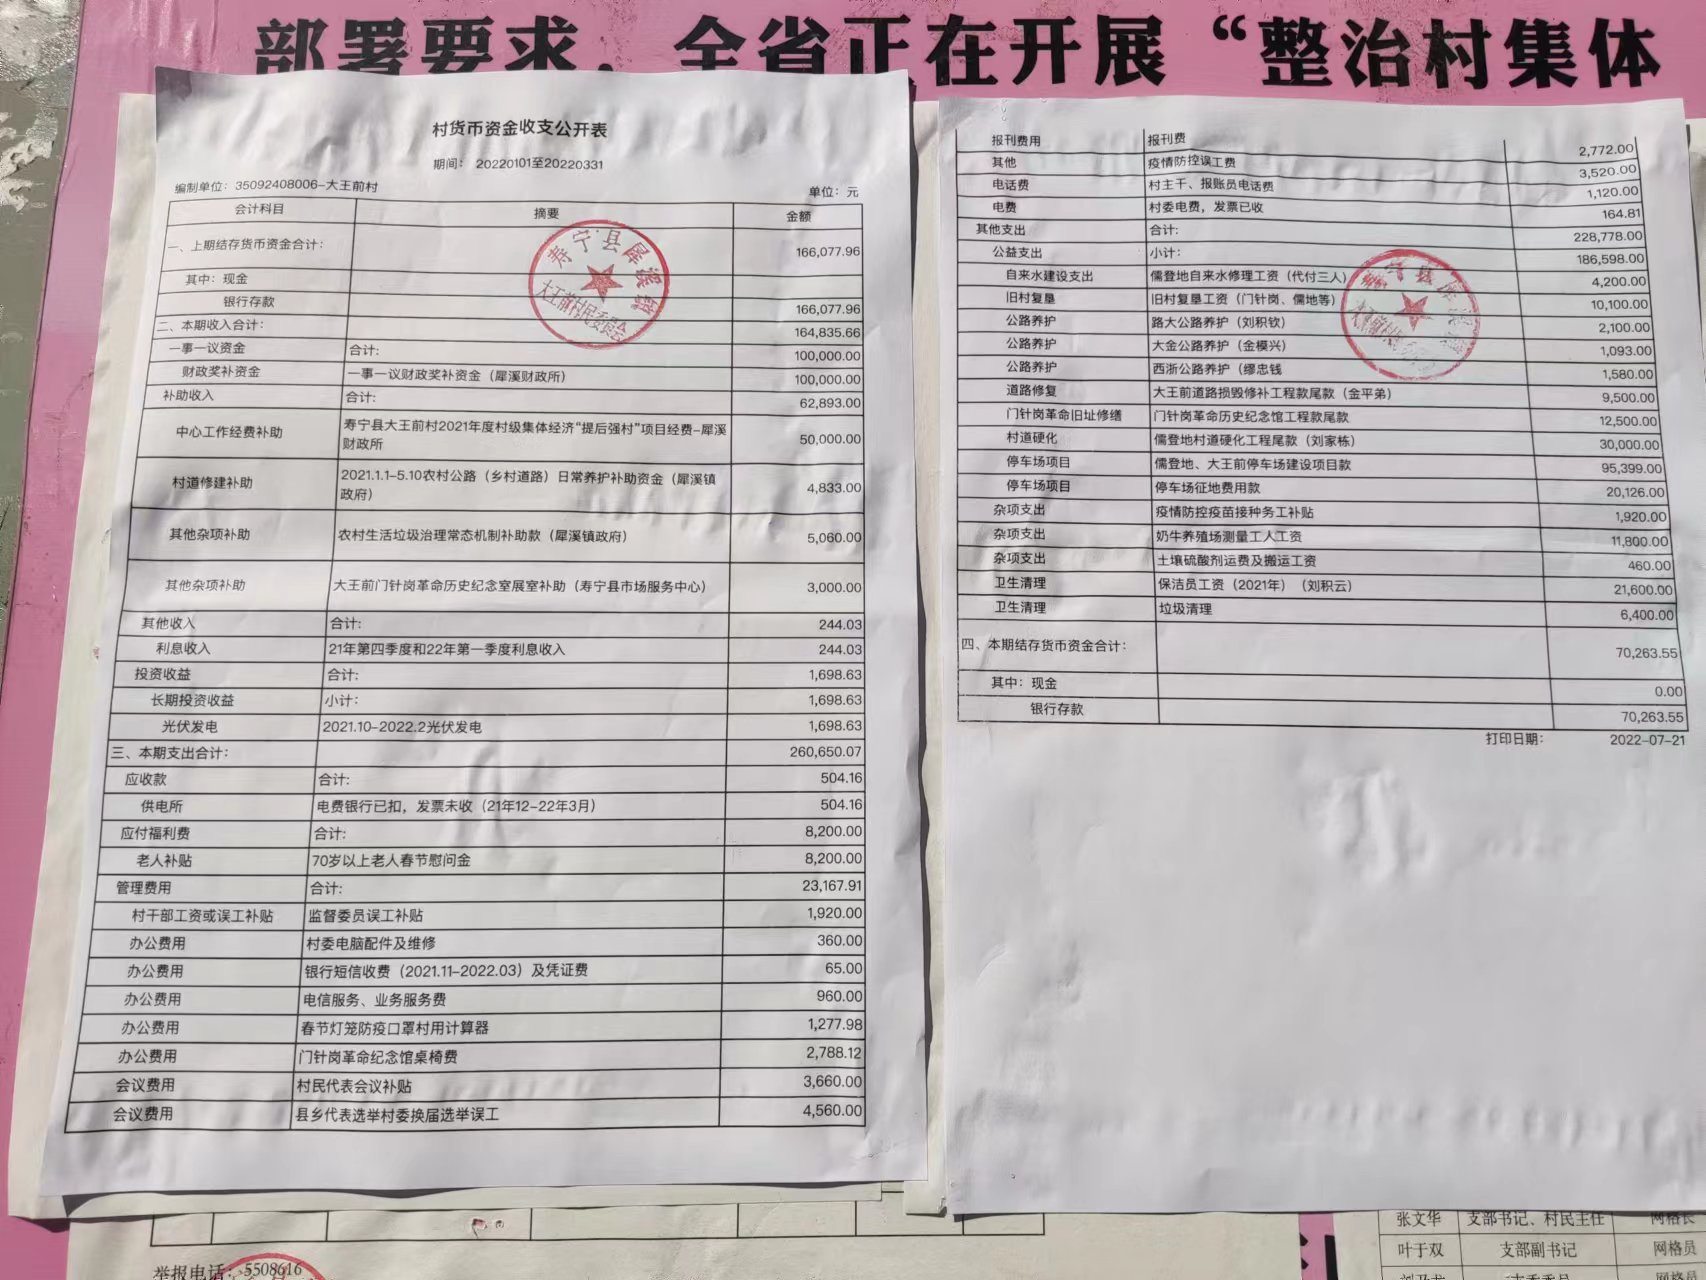 部署要求，全省正在开展“整治村集体
村货币资金收支公开表
期间： 20220101至20220331
编制单位：35092408006-大王前村
单位：元
会计科目 摘要 金额
一、上期结存货币资金合计： 166,077.96
其中：现金
银行存款 166,077.96
二、本期收入合计： 164,835.66
一事一议资金 合计: 100,000.00
财政奖补资金 一事一议财政奖补资金（犀溪财政所） 100,000.00
补助收入 合计: 62,893.00
中心工作经费补助 寿宁县大王前村2021年度村级集体经济“提后强村”项目经费-犀溪
财政所 50,000.00
村道修建补助 2021.1.1-5.10农村公路（乡村道路）日常养护补助资金（犀溪镇
政府） 4,833.00
其他杂项补助 农村生活垃圾治理常态机制补助款（犀溪镇政府） 5,060.00
其他杂项补助 大王前门针岗革命历史纪念室展室补助（寿宁县市场服务中心） 3,000.00
其他收入 合计: 244.03
利息收入 21年第四季度和22年第一季度利息收入 244.03
投资收益 合计: 1,698.63
长期投资收益 小计: 1,698.63
光伏发电 2021.10-2022.2光伏发电 1,698.63
三、本期支出合计: 260,650.07
应收款 合计: 504.16
供电所 电费银行已扣，发票未收（21年12-22年3月） 504.16
应付福利费 合计: 8,200.00
老人补贴 70岁以上老人春节慰问金 8,200.00
管理费用 合计: 23,167.91
村干部工资或误工补贴 监督委员误工补贴 1,920.00
办公费用 村委电脑配件及维修 360.00
办公费用 银行短信收费（2021.11-2022.03）及凭证费 65.00
办公费用 电信服务、业务服务费 960.00
办公费用 春节灯笼防疫口罩村用计算器 1,277.98
办公费用 门针岗革命纪念馆桌椅费 2,788.12
会议费用 村民代表会议补贴 3,660.00
会议费用 县乡代表选举村委换届选举误工 4,560.00
寿宁县犀溪镇
大王前村民委员会
报刊费用 报刊费 2,772.00
其他 疫情防控误工费 3,520.00
电话费 村主干、报账员电话费 1,120.00
电费 村委电费，发票已收 164.81
其他支出 合计: 228,778.00
公益支出 小计: 186,598.00
自来水建设支出 儒登地自来水修理工资（代付三人） 4,200.00
旧村复垦 旧村复垦工资（门针岗、儒地等） 10,100.00
公路养护 路大公路养护（刘积钦） 2,100.00
公路养护 大金公路养护（金模兴） 1,093.00
公路养护 西浙公路养护（缪忠钱 1,580.00
道路修复 大王前道路损毁修补工程款尾款（金平弟） 9,500.00
门针岗革命旧址修缮 门针岗革命历史纪念馆工程款尾款 12,500.00
村道硬化 儒登地村道硬化工程尾款（刘家栋） 30,000.00
停车场项目 儒登地、大王前停车场建设项目款 95,399.00
停车场项目 停车场征地费用款 20,126.00
杂项支出 疫情防控疫苗接种务工补贴 1,920.00
杂项支出 奶牛养殖场测量工人工资 11,800.00
杂项支出 土壤硫酸剂运费及搬运工资 460.00
卫生清理 保洁员工资（2021年）（刘积云） 21,600.00
卫生清理 垃圾清理 6,400.00
四、本期结存货币资金合计： 70,263.55
其中：现金 0.00
银行存款 70,263.55
打印日期： 2022-07-21
举报电话：5508616
张文华 支部书记、村民主任 网格长
叶于双 支部副书记 网格员